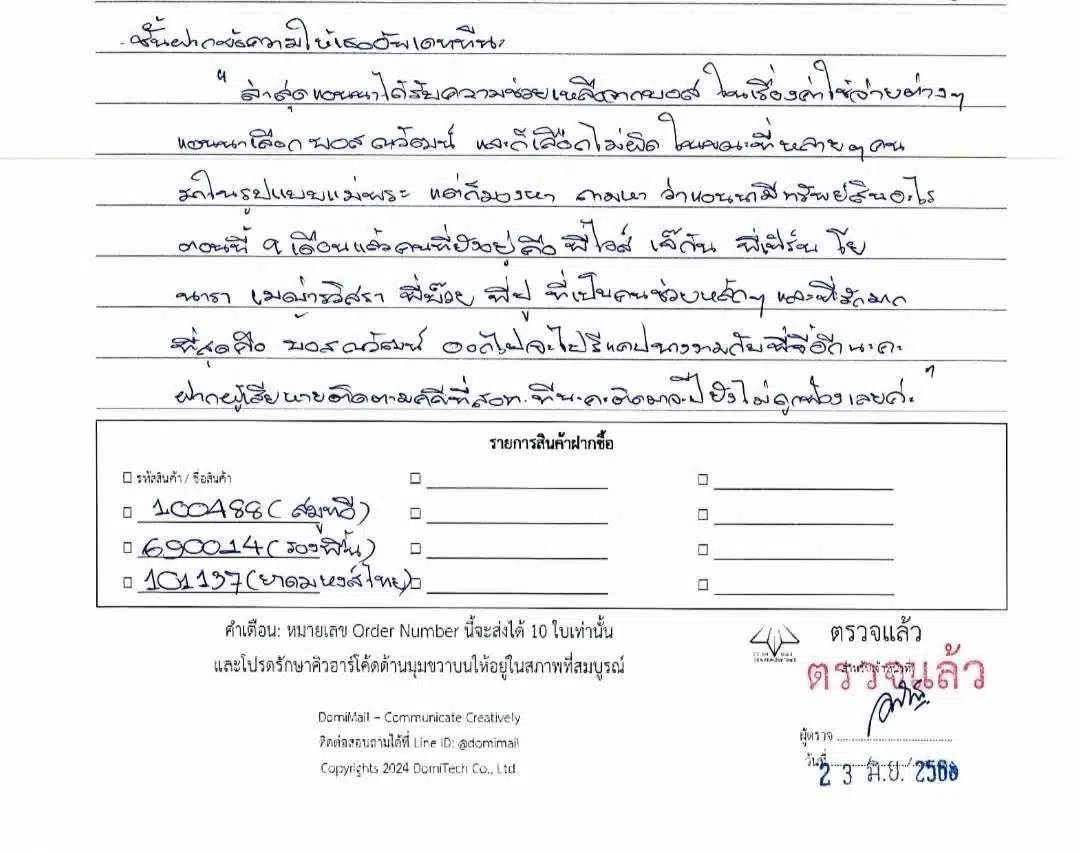 ชั้นฝากข้อความให้เธออัพเดททีนะ
" ล่าสุดแอนนาได้รับความช่วยเหลือจากบอส ในเรื่องค่าใช้จ่ายต่างๆ
แอนนาเลือกบอสณวัฒน์ และก็เลือกไม่ผิด ในขณะที่หลายๆคน
มาในรูปแบบแม่พระ แต่ก็มองหา ถามหา ว่าแอนนามีทรัพย์สินอะไร
ตอนนี้ 9 เดือนแล้วคนที่ยังอยู่คือ พี่ไอซ์ เจ๊กัน พี่เฟิร์น โย
นารา เมญ่ารวิสรา พี่บ๊วย พี่ปู ที่เป็นคนช่วยหลักๆ และที่รักมาก
ที่สุดคือ บอสณวัฒน์ ออกไปจะไปรีแคปนางงามกับพี่จี้อีกนะคะ
ฝากผู้เสียหายติดตามคดีที่สอท. ทีนะคะติดมาจะปียังไม่ถูกฟ้องเลยค่ะ "
รายการสินค้าฝากซื้อ
รหัสสินค้า / ชื่อสินค้า
100488 (สมูทอี)
690014 (รองพื้น)
101137 (ยาดมหงส์ไทย)
คำเตือน: หมายเลข Order Number นี้จะส่งได้ 10 ใบเท่านั้น
และโปรดรักษาคิวอาร์โค้ดด้านมุมขวาบนให้อยู่ในสภาพที่สมบูรณ์
DomiMail – Communicate Creatively
ติดต่อสอบถามได้ที่ Line ID: @domimail
Copyrights 2024 DomiTech Co., Ltd.
ตรวจแล้ว
ตรวจแล้ว
ผู้ตรวจ
วันที่
2 3 มิ.ย. 2568